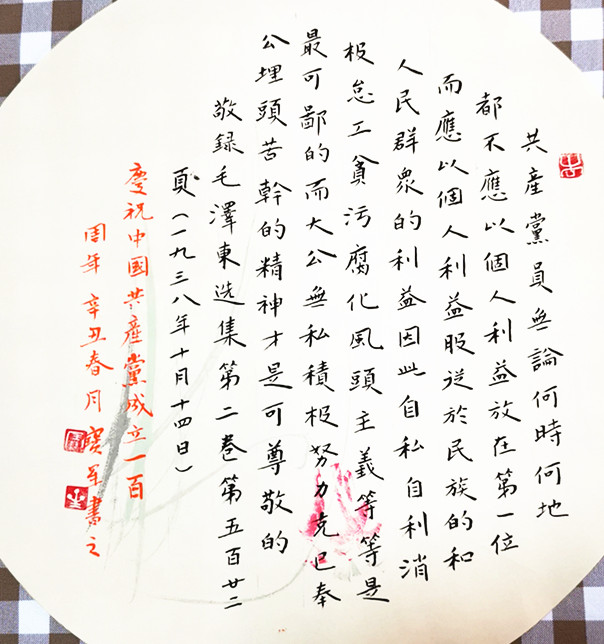 共產黨員無論何時何地
都不應以個人利益放在第一位
而應以個人利益服從於民族的和
人民群衆的利益因此自私自利消
极怠工貪污腐化風頭主義等等是
最可鄙的而大公無私積极努力克己奉
公埋頭苦幹的精神才是可尊敬的
敬録毛澤東选集第二卷第五百廿二
頁(一九三八年十月十四日)
慶祝中國共產黨成立一百
周年辛丑春月寶軍書之